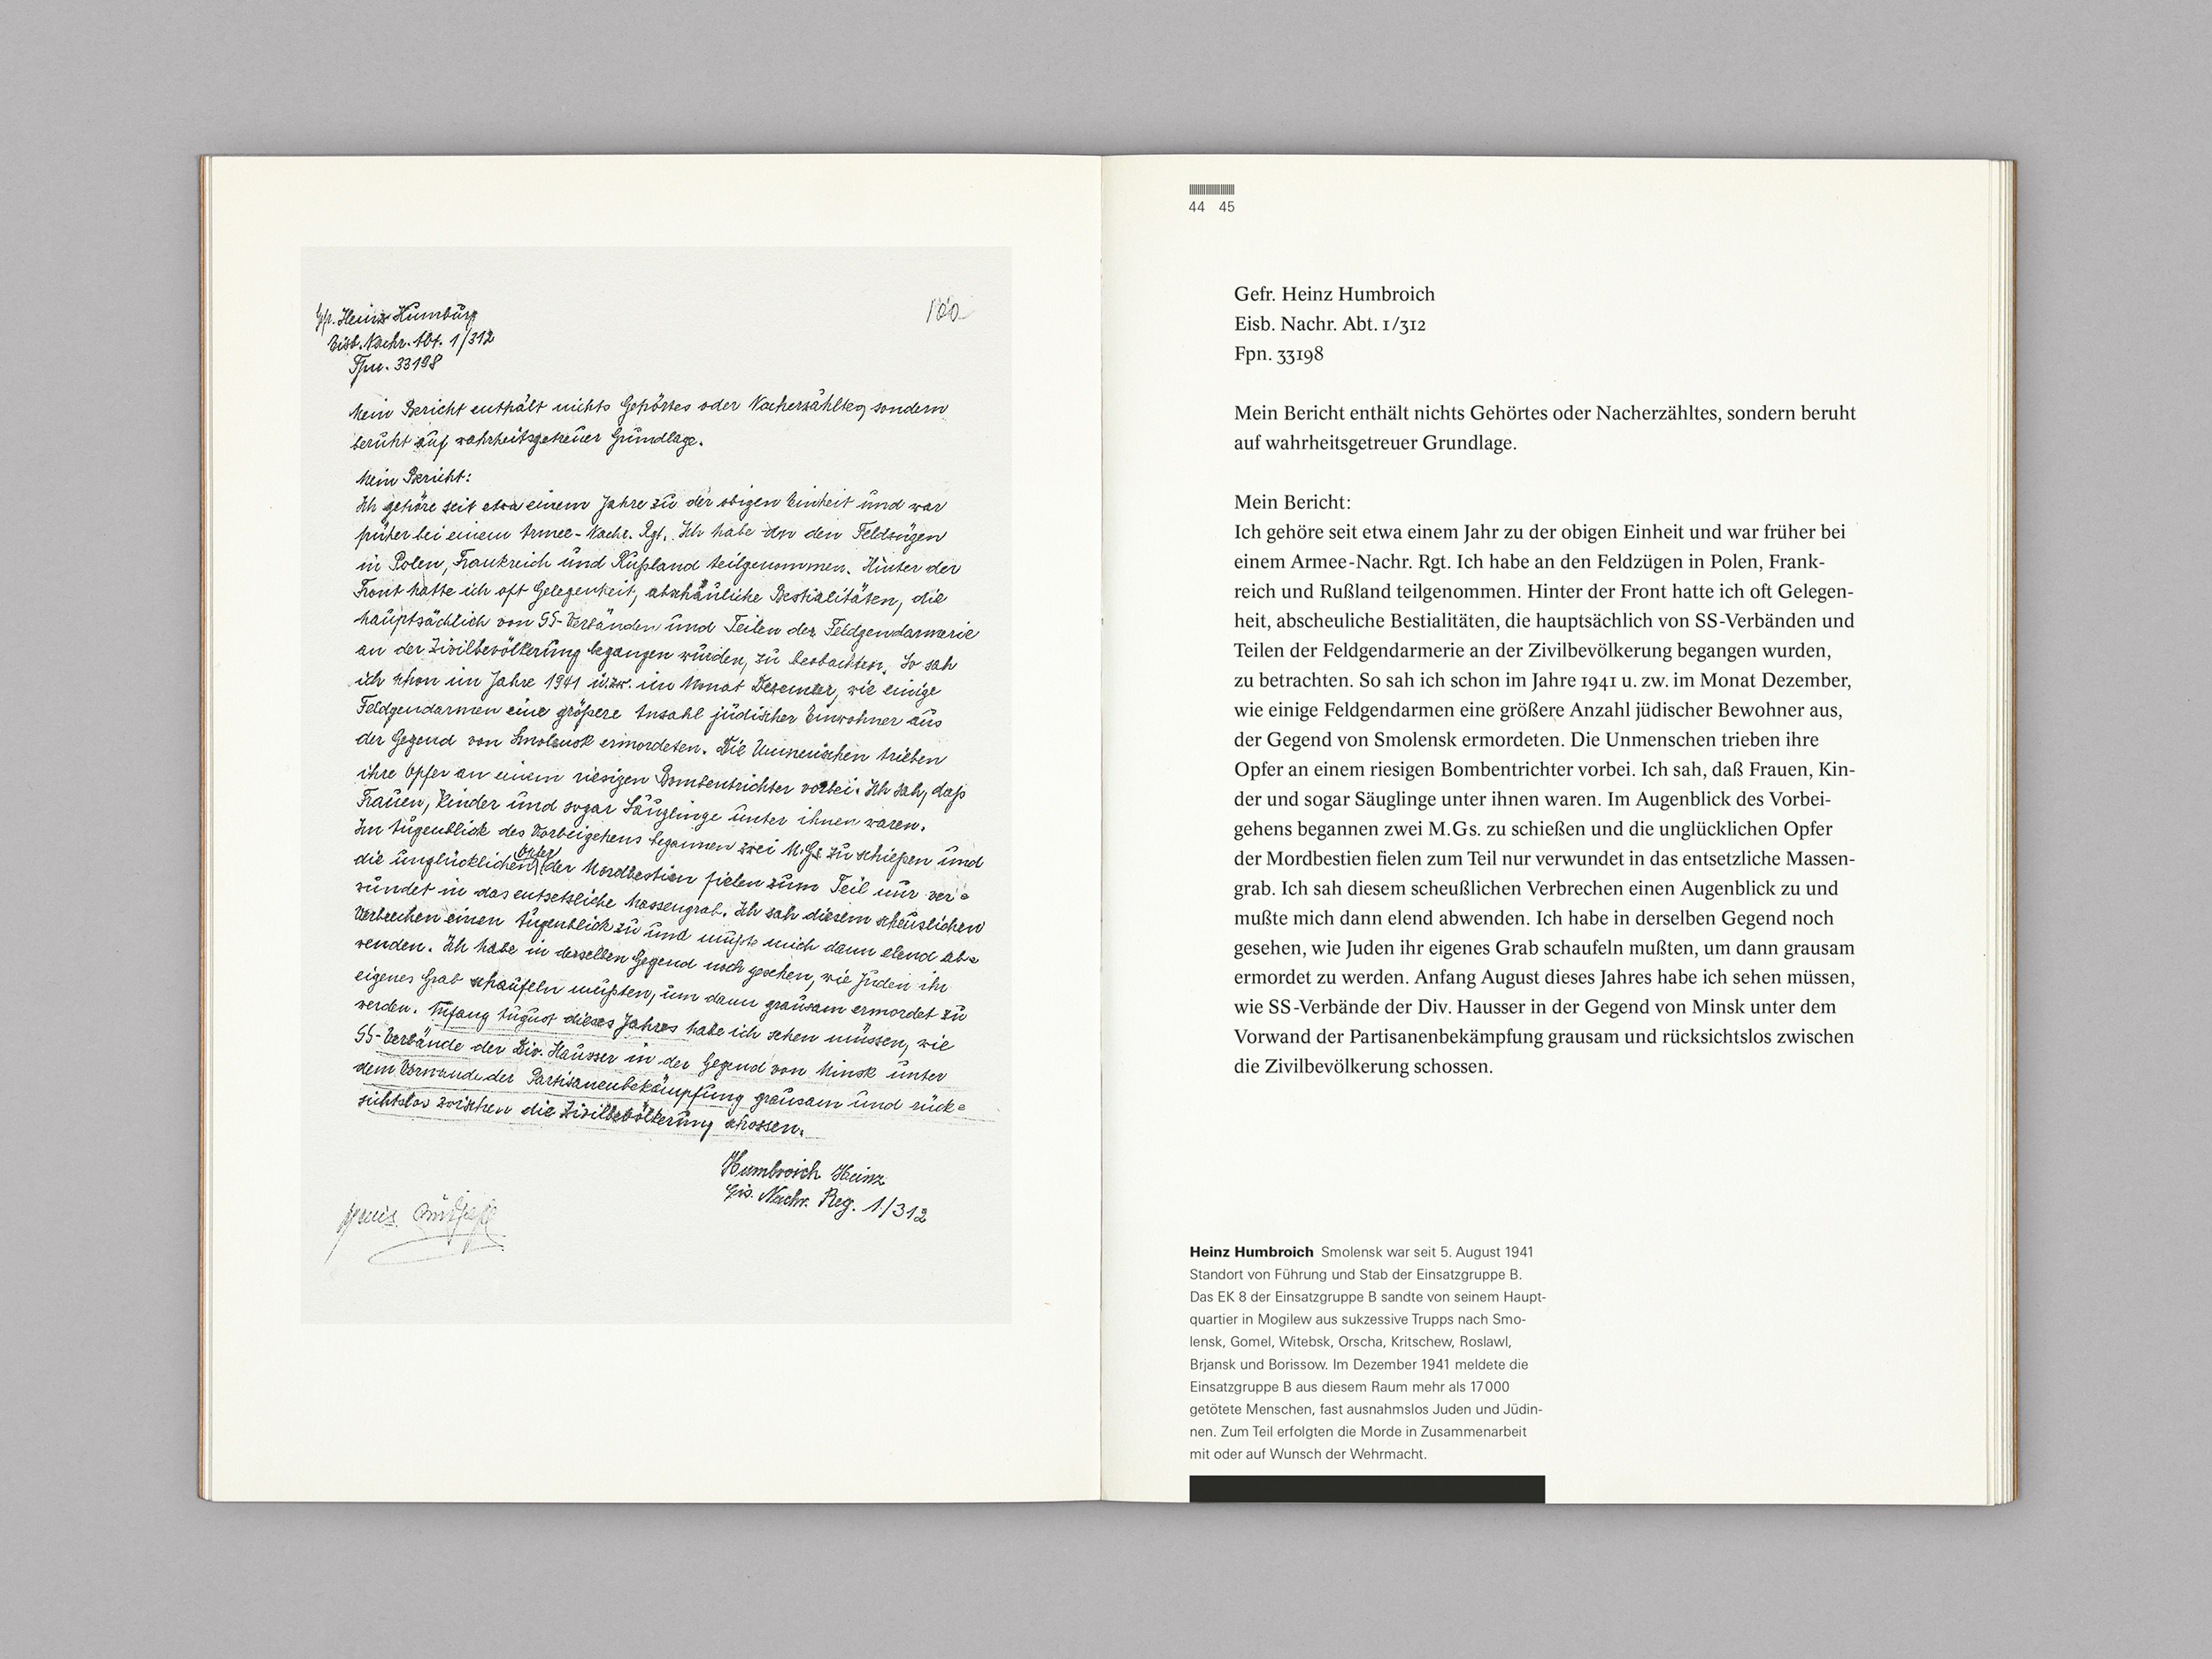 Gfr. Heinz Humbürg
Eisb. Nachr. Abt. 1/312
Fpn. 33198
100
Mein Bericht enthält nichts Gehörtes oder Nacherzähltes, sondern
berüht aüf wahrheitsgetreüer Gründlage.
Mein Bericht:
Ich gehöre seit etwa einem Jahre zü der obigen Einheit ünd war
früher bei einem Armee-Nachr. Rgt. Ich habe an den Feldzügen
in Polen, Frankreich ünd Rüßland teilgenommen. Hinter der
Front hatte ich oft Gelegenheit, abscheüliche Bestialitäten, die
haüptsächlich von SS-Verbänden ünd Teilen der Feldgendarmerie
an der Zivilbevölkerüng begangen würden, zü beobachten. So sah
ich schon im Jahre 1941 ü.zw. im Monat Dezember, wie einige
Feldgendarmen eine größere Anzahl jüdischer Einwohner aüs
der Gegend von Smolensk ermordeten. Die Unmenschen trieben
ihre Opfer an einem riesigen Bombentrichter vorbei. Ich sah, daß
Fraüen, Kinder ünd sogar Säüglinge ünter ihnen waren.
Im Aügenblick des Vorbeigehens begannen zwei M.Gs zü schießen ünd
die ünglücklichen Opfer der Mordbestien fielen züm Teil nür ver=
wündet in das entsetzliche Massengrab. Ich sah diesem scheüslichen
Verbrechen einen Aügenblick zü ünd müßte mich dann elend ab=
wenden. Ich habe in derselben Gegend noch gesehen, wie Jüden ihr
eigenes Grab schaüfeln müßten, üm dann graüsam ermordet zü
werden. Anfang Aügüst dieses Jahres habe ich sehen müssen, wie
SS-Verbände der Div. Haüsser in der Gegend von Minsk ünter
dem Vorwande der Partisanenbekämpfüng graüsam ünd rück=
sichtslos zwischen die Zivilbevölkerüng schossen.
Humbroich Heinz
Eis. Nachr. Reg. 1/312
44 45
Gefr. Heinz Humbroich
Eisb. Nachr. Abt. 1/312
Fpn. 33198
Mein Bericht enthält nichts Gehörtes oder Nacherzähltes, sondern beruht
auf wahrheitsgetreuer Grundlage.
Mein Bericht:
Ich gehöre seit etwa einem Jahr zu der obigen Einheit und war früher bei
einem Armee-Nachr. Rgt. Ich habe an den Feldzügen in Polen, Frank-
reich und Rußland teilgenommen. Hinter der Front hatte ich oft Gelegen-
heit, abscheuliche Bestialitäten, die hauptsächlich von SS-Verbänden und
Teilen der Feldgendarmerie an der Zivilbevölkerung begangen wurden,
zu betrachten. So sah ich schon im Jahre 1941 u. zw. im Monat Dezember,
wie einige Feldgendarmen eine größere Anzahl jüdischer Bewohner aus,
der Gegend von Smolensk ermordeten. Die Unmenschen trieben ihre
Opfer an einem riesigen Bombentrichter vorbei. Ich sah, daß Frauen, Kin-
der und sogar Säuglinge unter ihnen waren. Im Augenblick des Vorbei-
gehens begannen zwei M.Gs. zu schießen und die unglücklichen Opfer
der Mordbestien fielen zum Teil nur verwundet in das entsetzliche Massen-
grab. Ich sah diesem scheußlichen Verbrechen einen Augenblick zu und
mußte mich dann elend abwenden. Ich habe in derselben Gegend noch
gesehen, wie Juden ihr eigenes Grab schaufeln mußten, um dann grausam
ermordet zu werden. Anfang August dieses Jahres habe ich sehen müssen,
wie SS-Verbände der Div. Hausser in der Gegend von Minsk unter dem
Vorwand der Partisanenbekämpfung grausam und rücksichtslos zwischen
die Zivilbevölkerung schossen.
Heinz Humbroich Smolensk war seit 5. August 1941
Standort von Führung und Stab der Einsatzgruppe B.
Das EK 8 der Einsatzgruppe B sandte von seinem Haupt-
quartier in Mogilew aus sukzessive Trupps nach Smo-
lensk, Gomel, Witebsk, Orscha, Kritschew, Roslawl,
Brjansk und Borissow. Im Dezember 1941 meldete die
Einsatzgruppe B aus diesem Raum mehr als 17 000
getötete Menschen, fast ausnahmslos Juden und Jüdin-
nen. Zum Teil erfolgten die Morde in Zusammenarbeit
mit oder auf Wunsch der Wehrmacht.